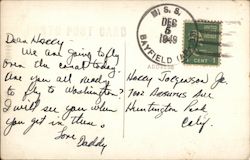 POST CARD
M. S. S.
DEC
5
1949
BAYFIELD
1 CENT
Dear Harry,
We are going to fly
over the canal today.
Are you all ready
to fly to Washington?
I will see you when
you get in there.
Love
Daddy
Harry Torgerson Jr.
Huntington Park
Calif.